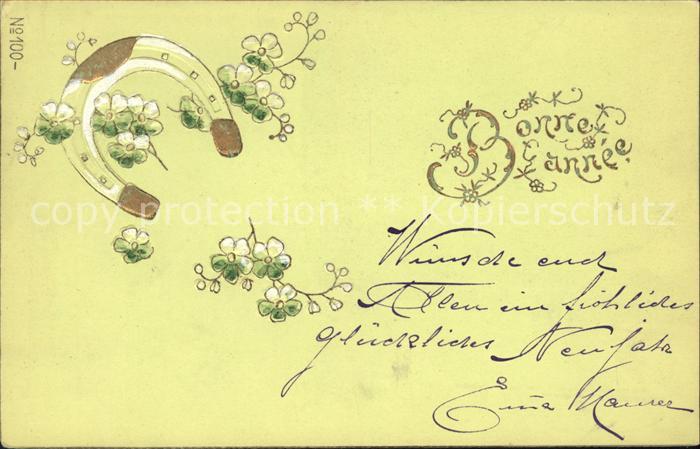 No 100-
Bonne
année.
copy protection ** Kopierschutz
Wünsche euch
Allen ein fröhliches
glückliches Neujahr
Maurer